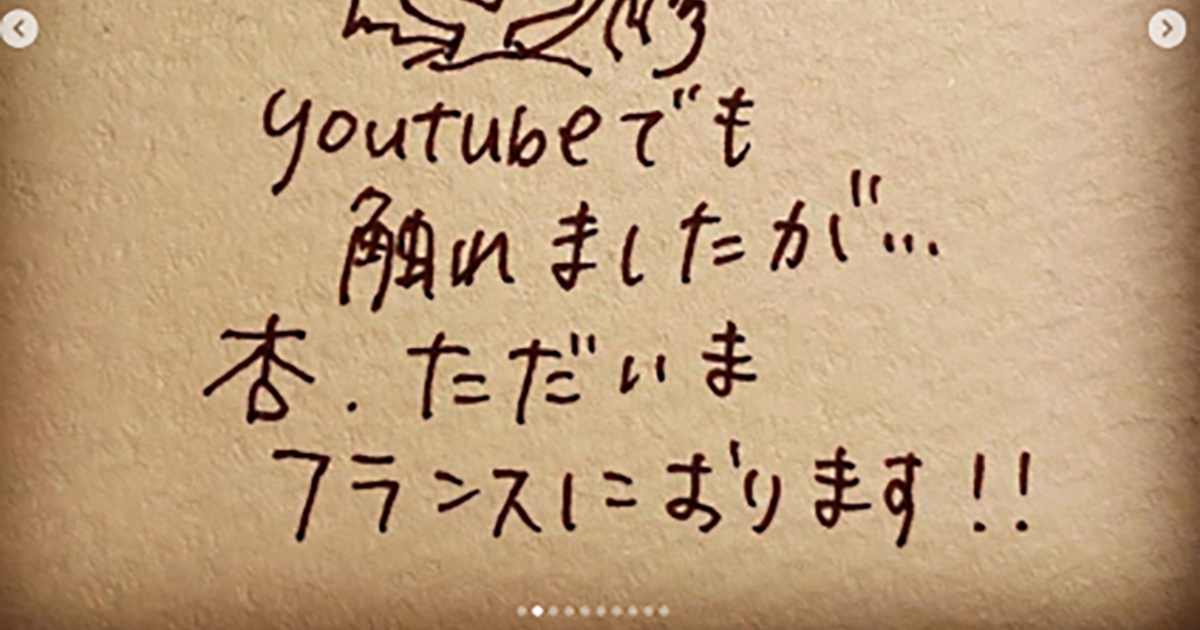 youtubeでも
触れましたが...
杏.ただいま
フランスにおります!!